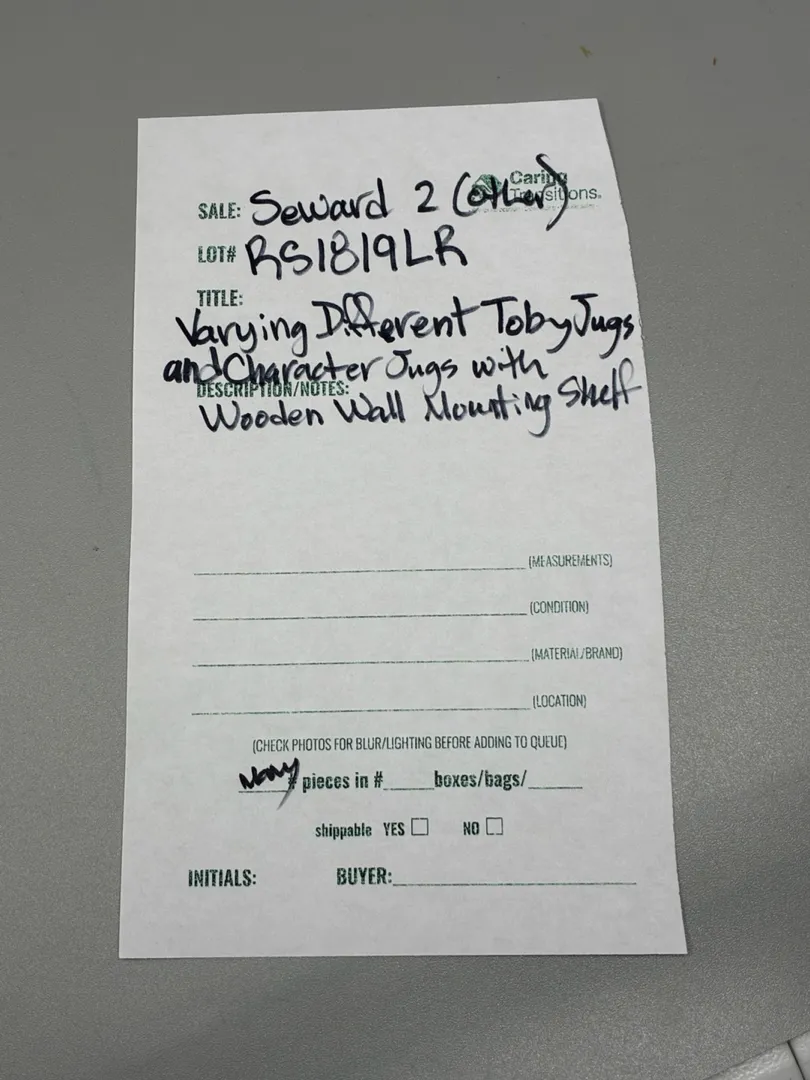 Caring
Transitions.
SALE: Seward 2 (other)
LOT# RS1819LR
TITLE:
Varying Different Toby Jugs
and Character Jugs with
DESCRIPTION/NOTES:
Wooden Wall Mounting Shelf
(MEASUREMENTS)
(CONDITION)
(MATERIAL/BRAND)
(LOCATION)
(CHECK PHOTOS FOR BLUR/LIGHTING BEFORE ADDING TO QUEUE)
Many # pieces in # boxes/bags/
shippable YES NO
INITIALS: BUYER: